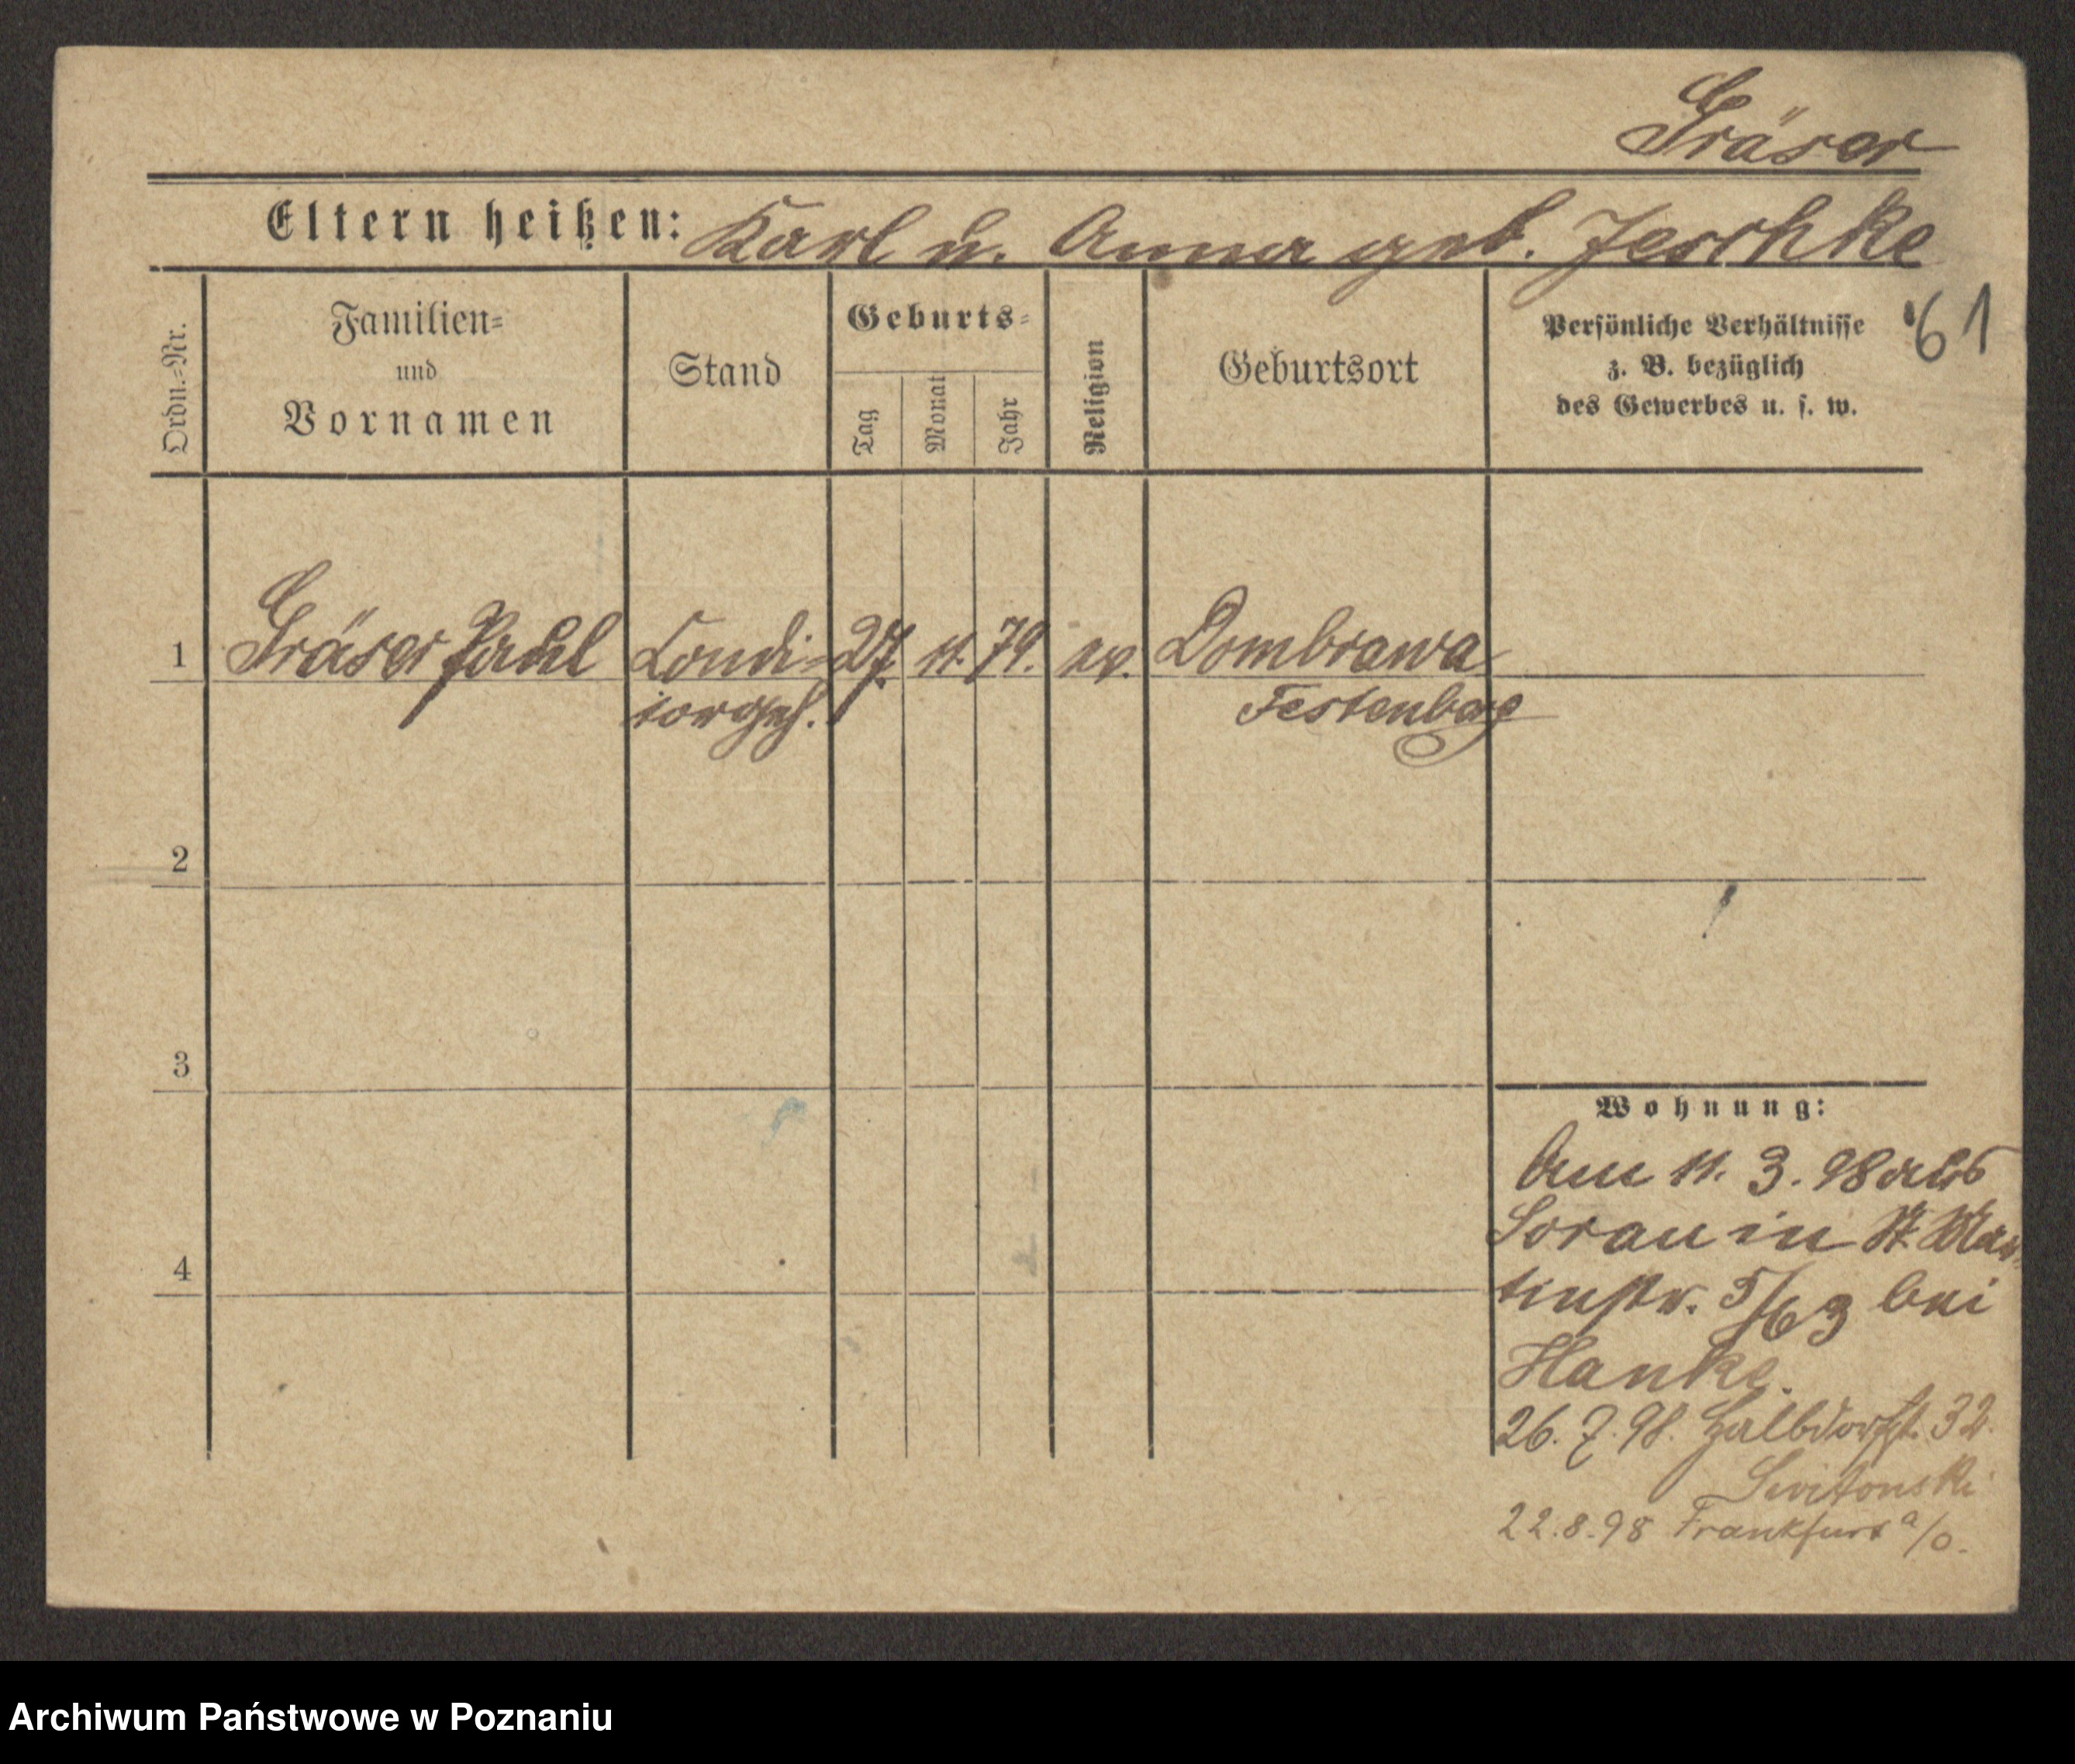 Gräser
Eltern heißen: Karl u. Anna geb. Jeschke
61
Ordn.-Nr.
Familien-
und
Vornamen
Stand
Geburts-
Tag
Monat
Jahr
Religion
Geburtsort
Persönliche Verhältnisse
z. B. bezüglich
des Gewerbes u. s. w.
1 Gräser Paul Condi- 27. 11. 79. ev. Dombrawa
torgeh. Festenberg
2
3
4
Wohnung:
Am 11. 3. 98 aus
Sorau in St. Mar-
tinstr. 5/63 bei
Hanke.
26. 7. 98. Halbdorfst. 32.
22.8.98 Frankfurt a/O.
Archiwum Państwowe w Poznaniu